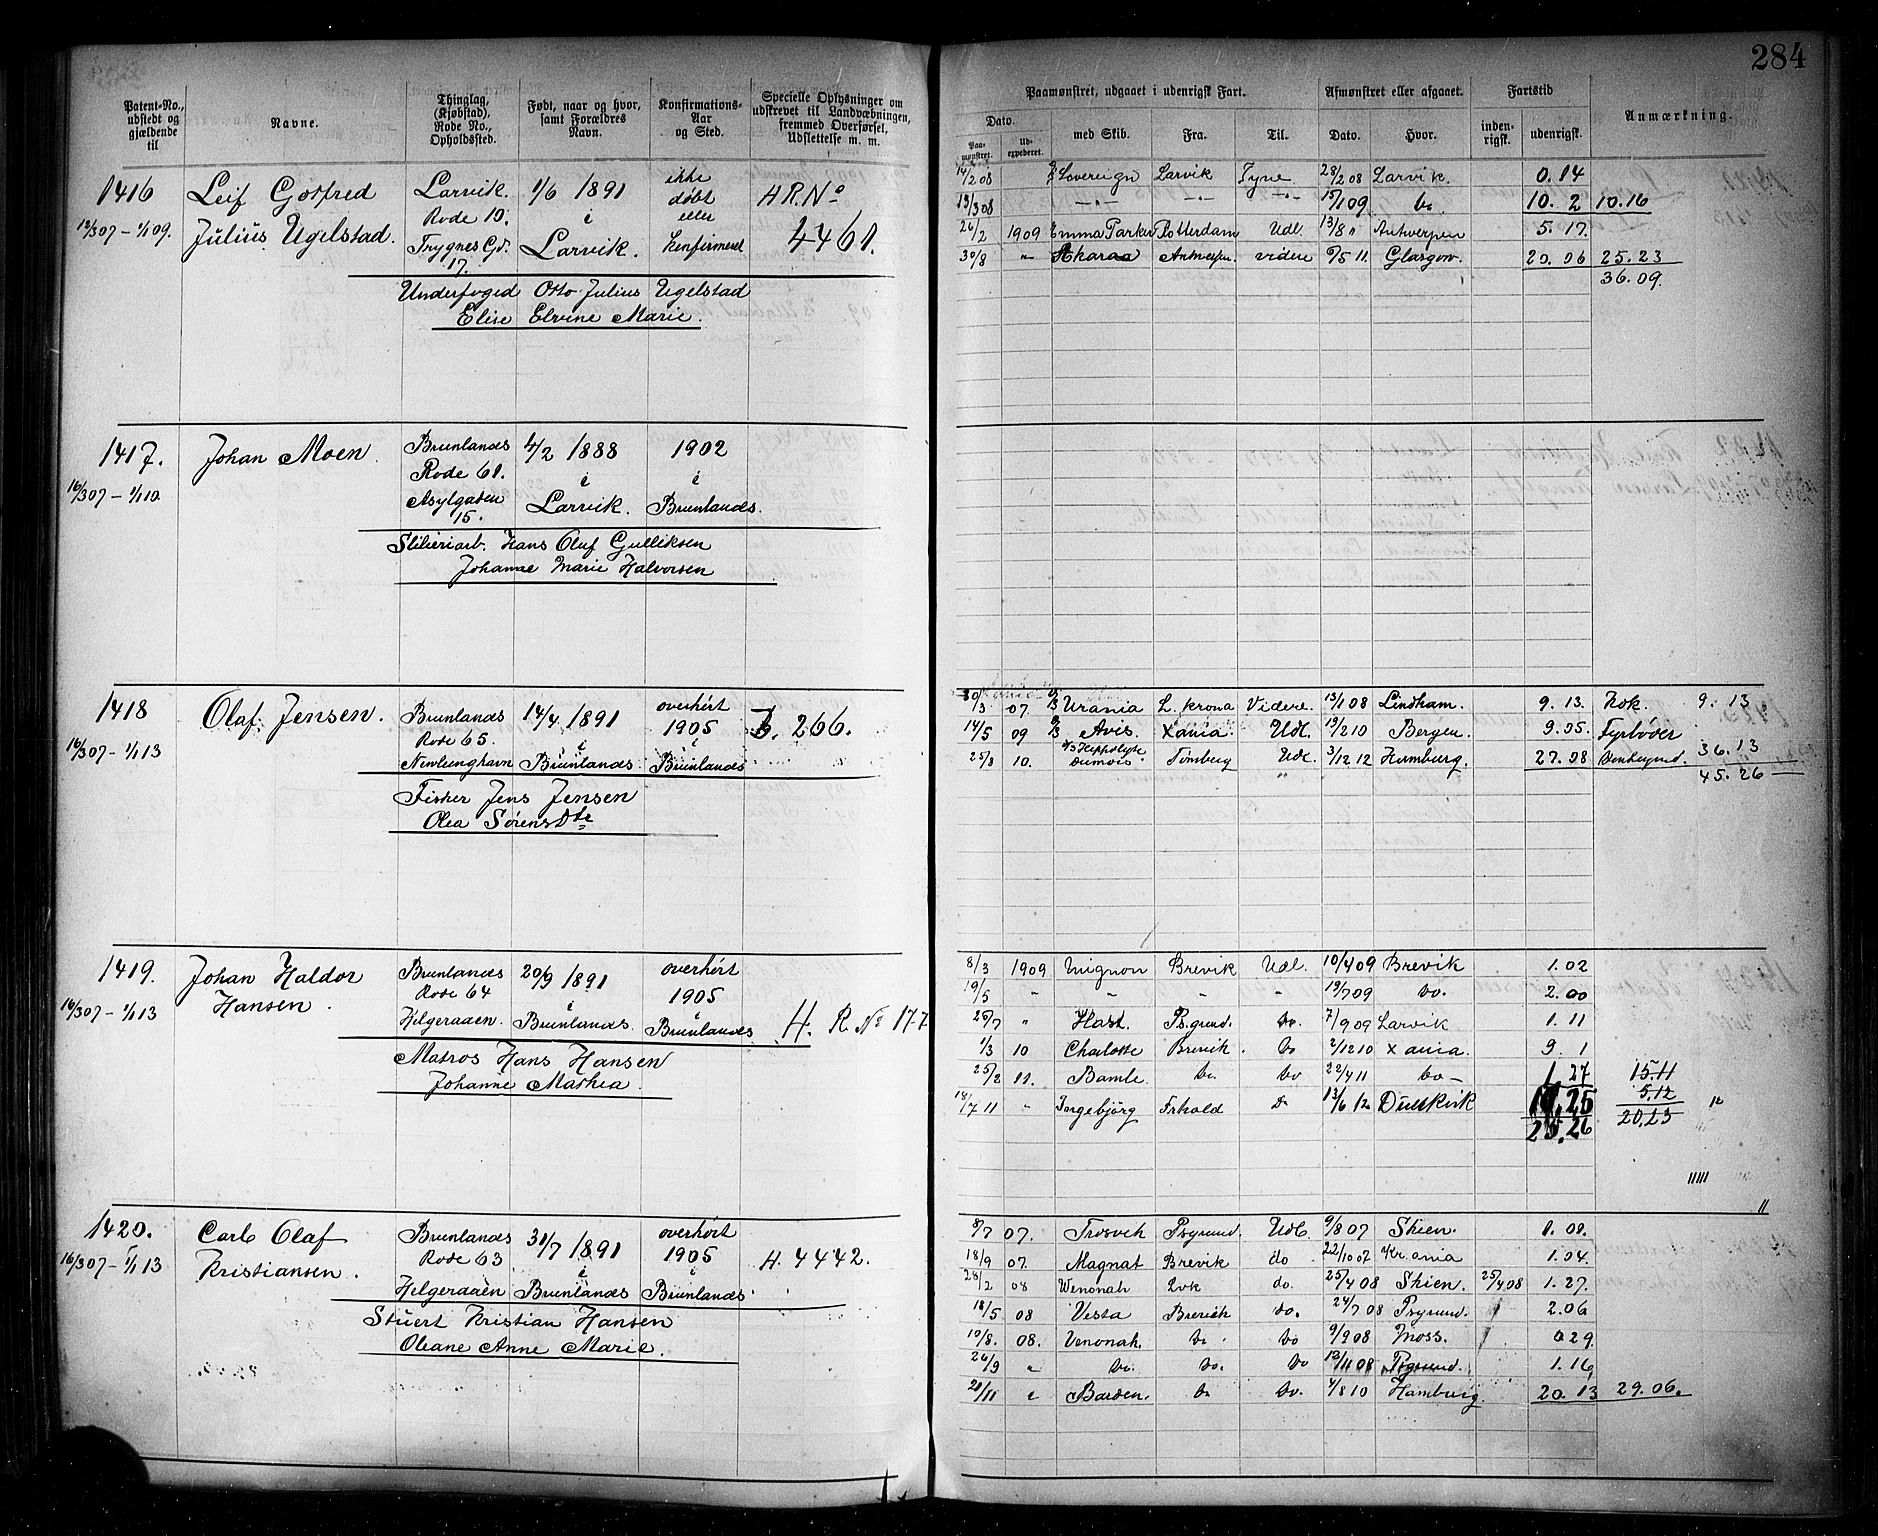 284
Patent-No., udstedt og gjældende til
Navne.
Thinglag, (Kjøbstad), Rode No., Opholdssted.
Født, naar og hvor, samt Forældres Navn.
Konfirmations-Aar og Sted.
Specielle Oplysninger om udskrevet til Landvæbningen, fremmed Overførsel, Udslettelse m. m.
Paamønstret, udgaaet i udenrigsk Fart.
Afmønstret eller afgaaet.
Fartstid
Anmærkning.
Dato.
Paa-mønstret.
Ud-expederet.
med Skib.
Fra.
Til.
Dato.
Hvor.
inden-rigsk.
udenrigsk.
1416
12/3 07 – 1/1 09.
Leif Gotfred
Julius Ugelstad.
Larvik.
Rode 10.
Trygnes Gd.
17.
1/6 1891
i
Larvik.
ikke
døbt
eller
konfirmeret
H R. No
4461.
Underfoged Otto Julius Ugelstad
Elise Elvine Marie.
14/2 08 Sovereign Larvik Tyne 28/2 08 Larvik. 0. 14
13/3 08 —"— —"— —"— 15/1 09 do 10. 2 10. 16
26/2 1909 Emma Parker Rotterdam Udl 13/8 " Antwerpen 5. 17.
30/8 " Skaraa Antwerpen. videre 6/5 11. Glasgow. 20. 06 25. 23
36. 09.
1417.
16/3 07 – 1/1 10.
Johan Moen.
Brunlandes
Rode 61.
Asylgaden
15.
4/2 1888
i
Larvik.
1902
i
Brunlandes.
Sliberiarb. Hans Olaf Gulliksen
Johanne Marie Halvorsen
1418
16/3 07 – 1/1 13
Olaf Jensen.
Brunlandes
Rode 65.
Nevlunghavn
14/4 1891
i
Brunlandes
overhørt
1905
i
Brunlandes
266.
Fisker Jens Jensen
Olea Sørens Dte
30/3 07. Urania L. krona Videre 13/1 08 Lindham. 9. 13. Kok. 9. 13
14/5 09 Avis. Xania Udl. 19/2 10 Bergen. 9. 05. Fyrbøder
25/8 10. Hippolyte Dumois Tønsberg Udl. 3/12 12 Hamburg. 27. 08 36. 13
45. 26
1419.
16/3 07 – 1/1 13
Johan Haldor
Hansen.
Brunlandes
Rode 64
Helgeraaen.
20/9 1891
i
Brunlandes.
overhørt
1905
i
Brunlandes
H. R. No 177
Matros Hans Hansen
Johanne Mathea.
8/3 1909 Mignon Brevik Udl. 10/4 09 Brevik 1. 02
19/5 " " " " 19/7 09 do. 2. 00
26/7 " Hast. Psgrund. do. 7/9 09 Larvik 1. 11
1/3 10 Charlotte Brevik. do 2/12 10 Xania. 9. 1
25/2 11. Bamle do. do 22/4 11 do— 1. 27 15. 11
18/7 11 " Ingebjörg Frhald do 13/6 12 Dunkvik 10. 25 5. 12
25. 26 20. 23
1420.
16/3 07 – 1/1 13
Carl Olaf
Kristiansen.
Brunlandes
Rode 63
Helgeraaen
31/7 1891
i
Brunlandes
overhørt
1905
i
Brunlandes
H. 4442.
Stuert Kristian Hansen
Oleane Anne Marie.
8/7 07. Trosvik Psgrund. Udl 9/8 07 Skien. 1. 00.
18/9 07. Magnat Brevik do 22/10 07 Kr.ania 1. 04.
28/2 08 Wenonah Lvk do. 25/4 08 Skien. 25/4 08 1. 27.
18/5 08 Vesta Brevik do. 24/7 08 Psgrund. 2. 06
10/8. 08. Venonah. do. do 9/9 08 Moss. 0 29.
26/9 " do. do. do 12/11 08 Psgrund. 1. 16
21/11 " Barden. do do. 4/8 10 Hamburg 20. 13 29. 06.